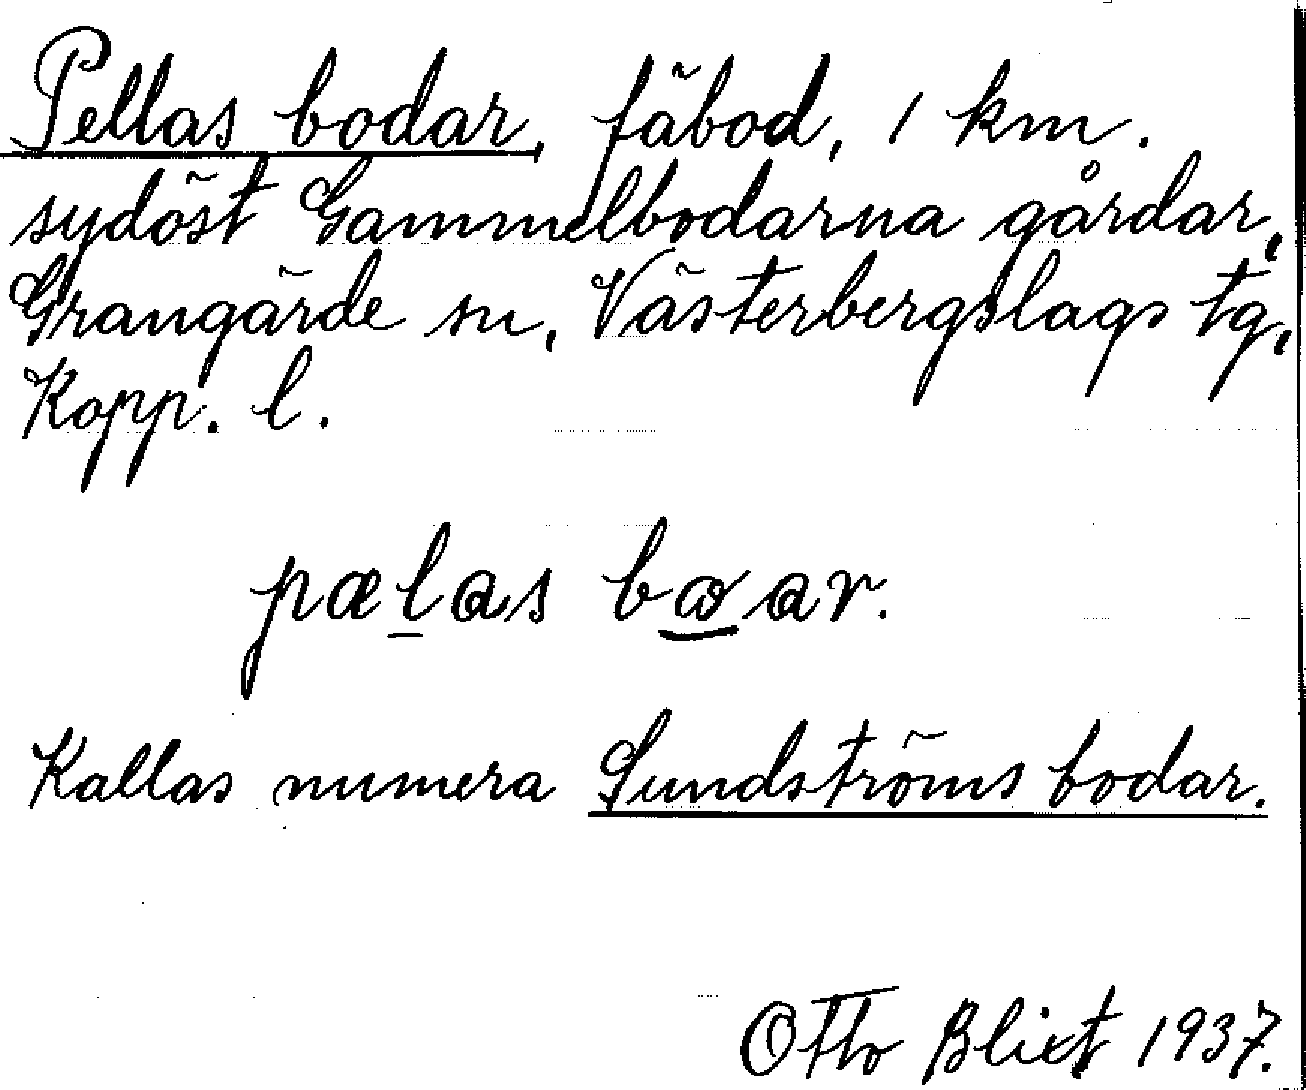 Pellas bodar, fäbod, 1 km.
sydöst Gammelbodarna gårdar,
Grangärde sn, Västerbergslags tg,
Kopp. l.
pælas bωar.
Kallas numera Sundströms bodar.
Otto Blixt 1937.